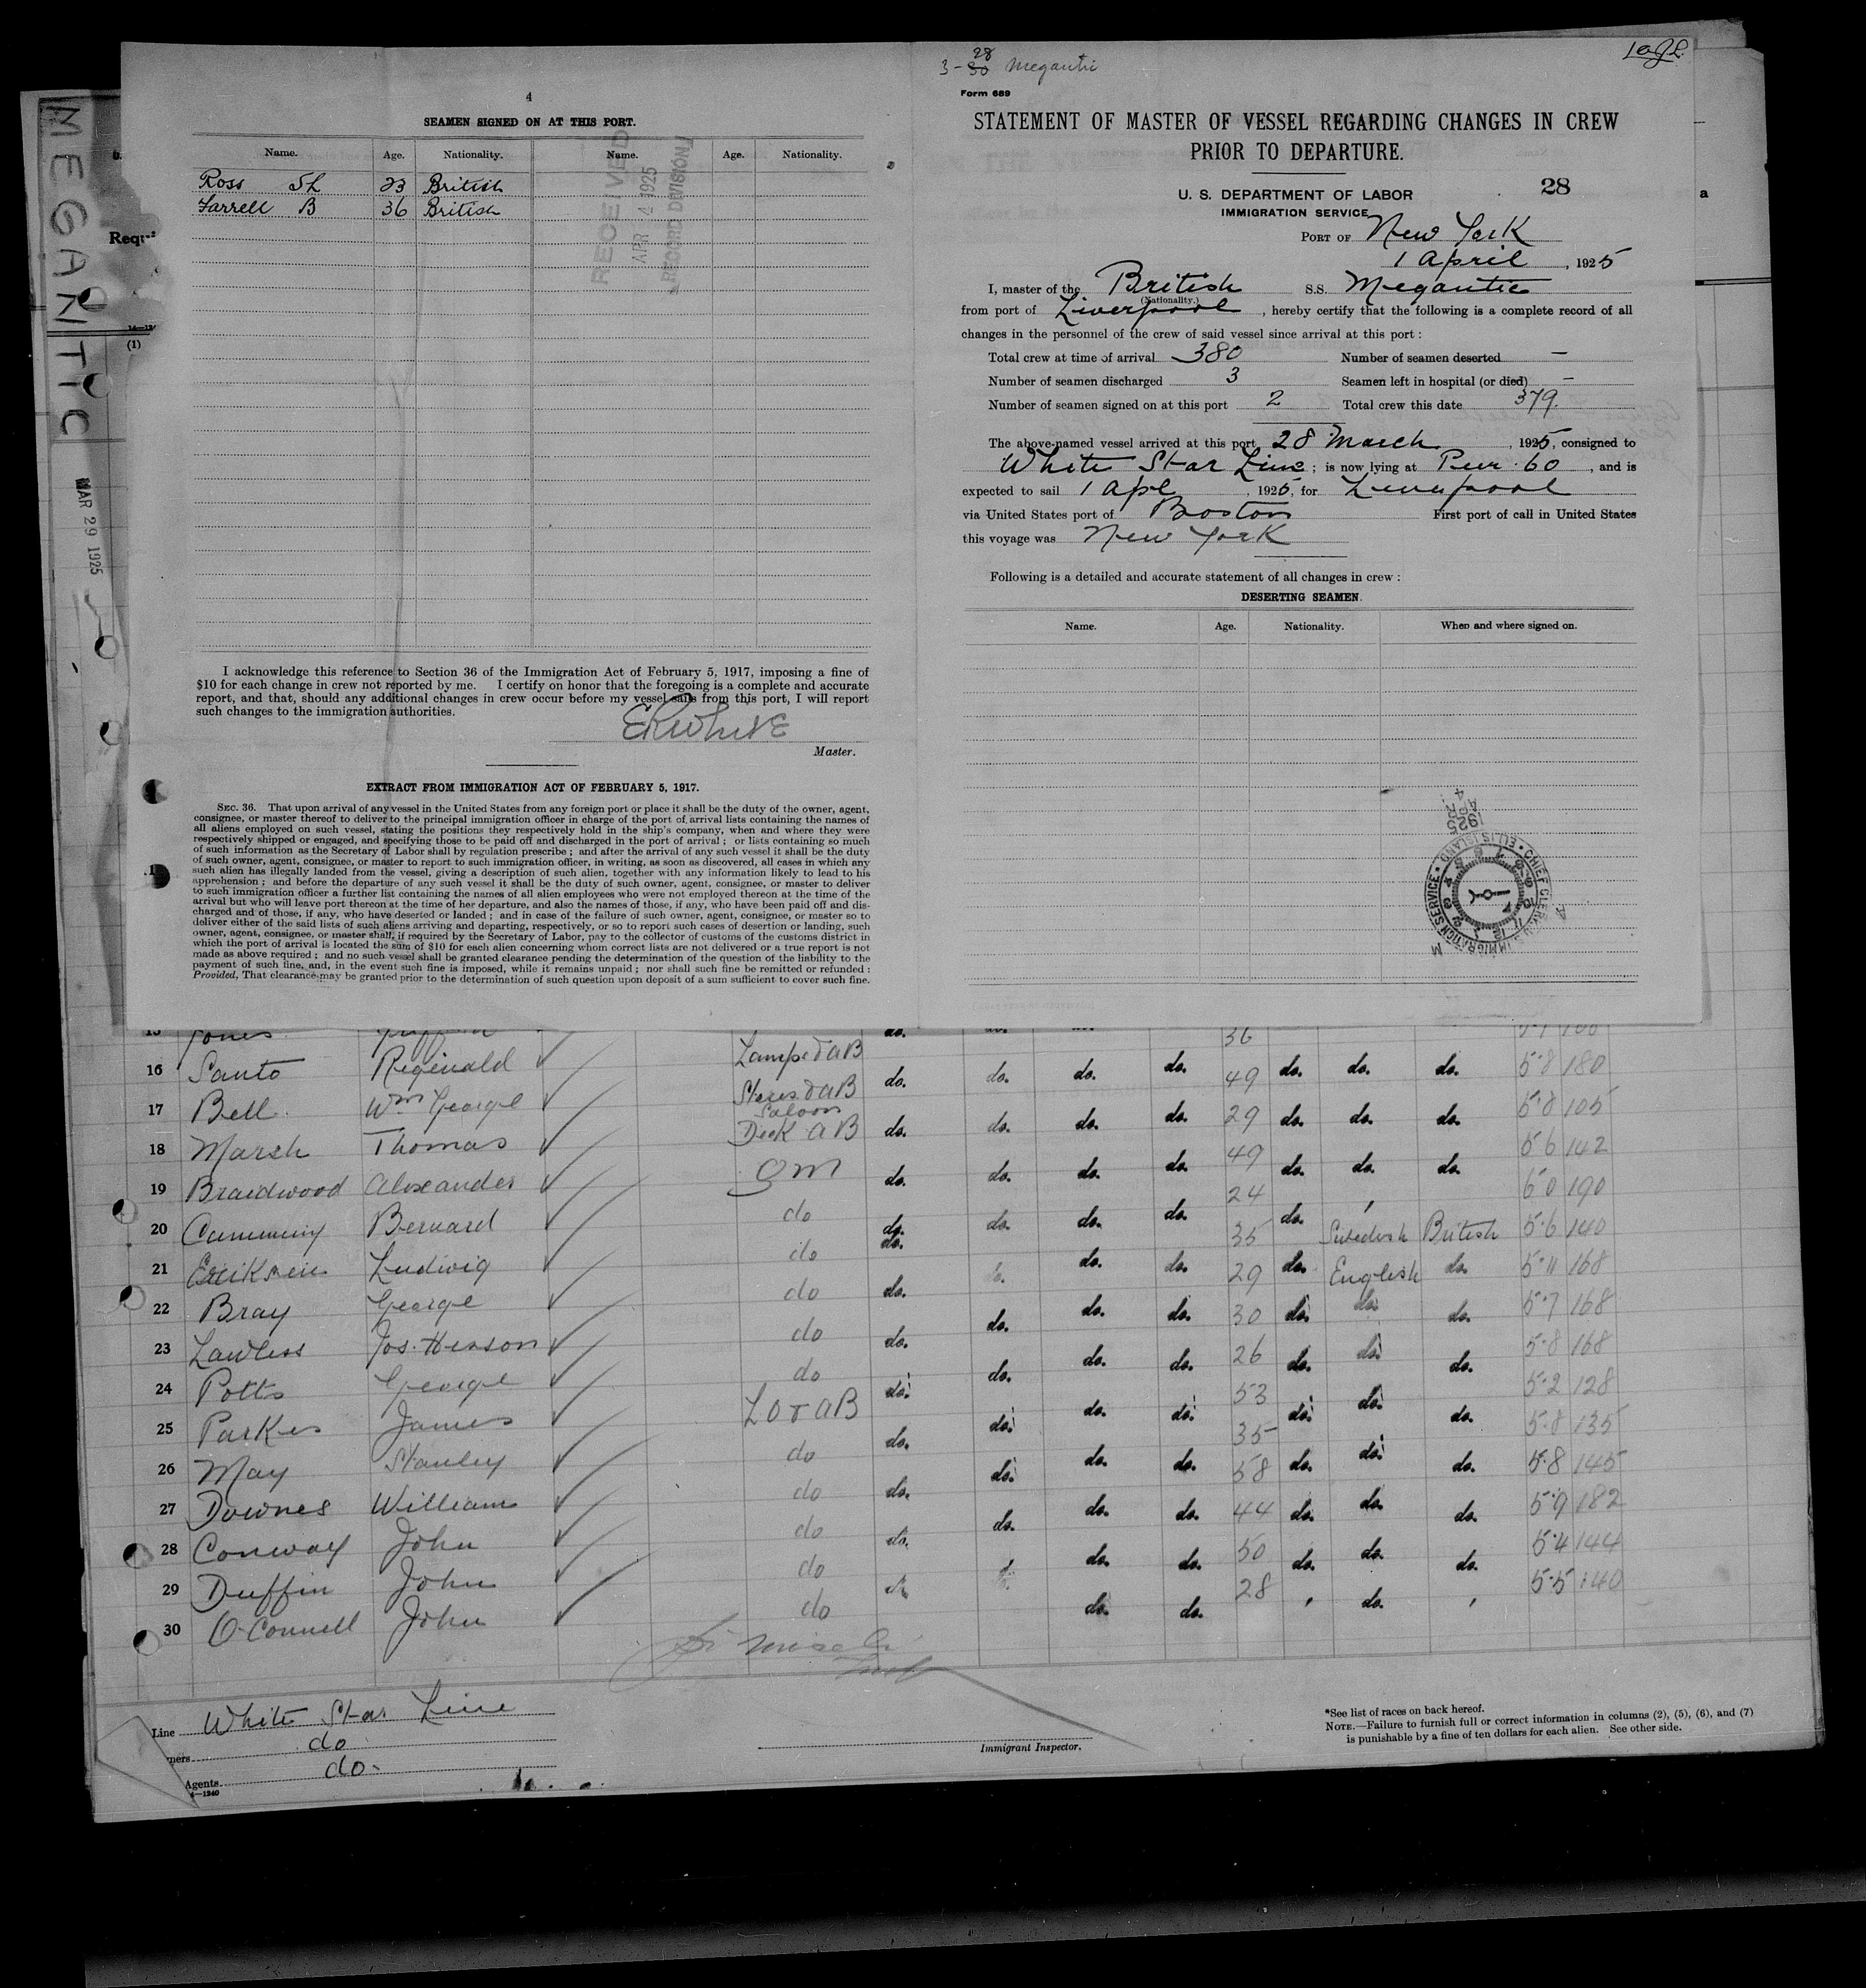 MEGANTIC
MAR 29 1925
4
SEAMEN SIGNED ON AT THIS PORT.
Name. Age. Nationality. Name. Age. Nationality.
Ross 23 British
Farrell B 36 British
RECEIVED
APR 4 1925
RECORD DIVISION
I acknowledge this reference to Section 36 of the Immigration Act of February 5, 1917, imposing a fine of
$10 for each change in crew not reported by me. I certify on honor that the foregoing is a complete and accurate
report, and that, should any additional changes in crew occur before my vessel sails from this port, I will report
such changes to the immigration authorities.
ERWhite
Master.
EXTRACT FROM IMMIGRATION ACT OF FEBRUARY 5, 1917.
SEC. 36. That upon arrival of any vessel in the United States from any foreign port or place it shall be the duty of the owner, agent,
consignee, or master thereof to deliver to the principal immigration officer in charge of the port of arrival lists containing the names of
all aliens employed on such vessel, stating the positions they respectively hold in the ship's company, when and where they were
respectively shipped or engaged, and specifying those to be paid off and discharged in the port of arrival; or lists containing so much
of such information as the Secretary of Labor shall by regulation prescribe; and after the arrival of any such vessel it shall be the duty
of such owner, agent, consignee, or master to report to such immigration officer, in writing, as soon as discovered, all cases in which any
such alien has illegally landed from the vessel, giving a description of such alien, together with any information likely to lead to his
apprehension; and before the departure of any such vessel it shall be the duty of such owner, agent, consignee, or master to deliver
to such immigration officer a further list containing the names of all alien employees who were not employed thereon at the time of the
arrival but who will leave port thereon at the time of her departure, and also the names of those, if any, who have been paid off and dis-
charged and of those, if any, who have deserted or landed; and in case of the failure of such owner, agent, consignee, or master so to
deliver either of the said lists of such aliens arriving and departing, respectively, or so to report such cases of desertion or landing, such
owner, agent, consignee, or master shall, if required by the Secretary of Labor, pay to the collector of customs of the customs district in
which the port of arrival is located the sum of $10 for each alien concerning whom correct lists are not delivered or a true report is not
made as above required; and no such vessel shall be granted clearance pending the determination of the question of the liability to the
payment of such fine, and, in the event such fine is imposed, while it remains unpaid; nor shall such fine be remitted or refunded:
Provided, That clearance may be granted prior to the determination of such question upon deposit of a sum sufficient to cover such fine.
28
3-30 Megantic
Form 689
STATEMENT OF MASTER OF VESSEL REGARDING CHANGES IN CREW
PRIOR TO DEPARTURE.
U. S. DEPARTMENT OF LABOR
28
IMMIGRATION SERVICE
PORT OF New York
1 April, 1925
I, master of the British S.S. Megantic
(Nationality.)
from port of Liverpool, hereby certify that the following is a complete record of all
changes in the personnel of the crew of said vessel since arrival at this port:
Total crew at time of arrival 380 Number of seamen deserted —
Number of seamen discharged 3 Seamen left in hospital (or died) —
Number of seamen signed on at this port 2 Total crew this date 379
The above-named vessel arrived at this port 28 March, 1925, consigned to
White Star Line; is now lying at Pier 60, and is
expected to sail 1 Apl, 1925, for Liverpool
via United States port of Boston First port of call in United States
this voyage was New York
Following is a detailed and accurate statement of all changes in crew:
DESERTING SEAMEN.
Name. Age. Nationality. When and where signed on.
1925 APR 4
CHIEF CLERK IMMIGRATION SERVICE ELLIS ISLAND
15 Jones 36
16 Santo Reginald Lamps & AB do. do. do. do. 49 do. do. do. 5-8 180
17 Bell Wm George Stores & AB do. do. do. do. 29 do. do. do. 5-8 105
18 Marsh Thomas Saloon Deck AB do. do. do. do. 49 do. do. do. 5 6 142
19 Braidwood Alexander QM do. do. do. do. 24 do. 6 0 190
20 Cumming Bernard do do. do. do. do. 35 do. Swedish British 5-6 140
21 Eriksen Ludwig do do. do. do. do. 29 do. English do. 5-11 168
22 Bray George do do. do. do. do. 30 do. do. do. 5-7 168
23 Lawless Jos. Henson do do. do. do. do. 26 do. do. do. 5-8 168
24 Potts George do do. do. do. do. 53 do. do. do. 5-2 128
25 Parkes James LO & AB do. do. do. do. 35 do. do. do. 5-8 135
26 May Stanley do do. do. do. do. 58 do. do. do. 5-8 145
27 Downes William do do. do. do. do. 44 do. do. do. 5-9 182
28 Conway John do do. do. do. do. 50 do. do. do. 5-4 144
29 Duffin John do do. do. do. 28 do. 5-5 140
30 O'Connell John do
Line White Star Line
do
Agents do.
Immigrant Inspector.
*See list of races on back hereof.
NOTE.—Failure to furnish full or correct information in columns (2), (5), (6), and (7)
is punishable by a fine of ten dollars for each alien. See other side.